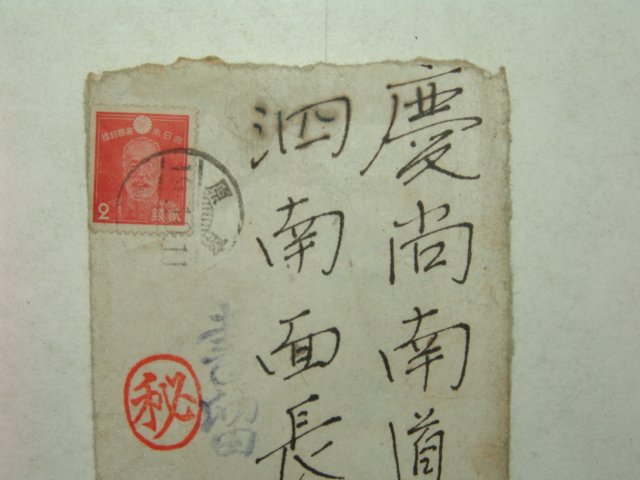 慶尚南道
泗南面長
大日本帝國郵便
貳錢
2
秘